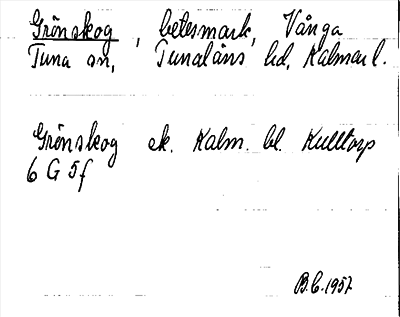 Grönskog, betesmark, Vånga
Tuna sn, Tunaläns hd, Kalmar l.
Grönskog ek. Kalm. bl. Kulltorp
6 G 5f
B.C. 1957.